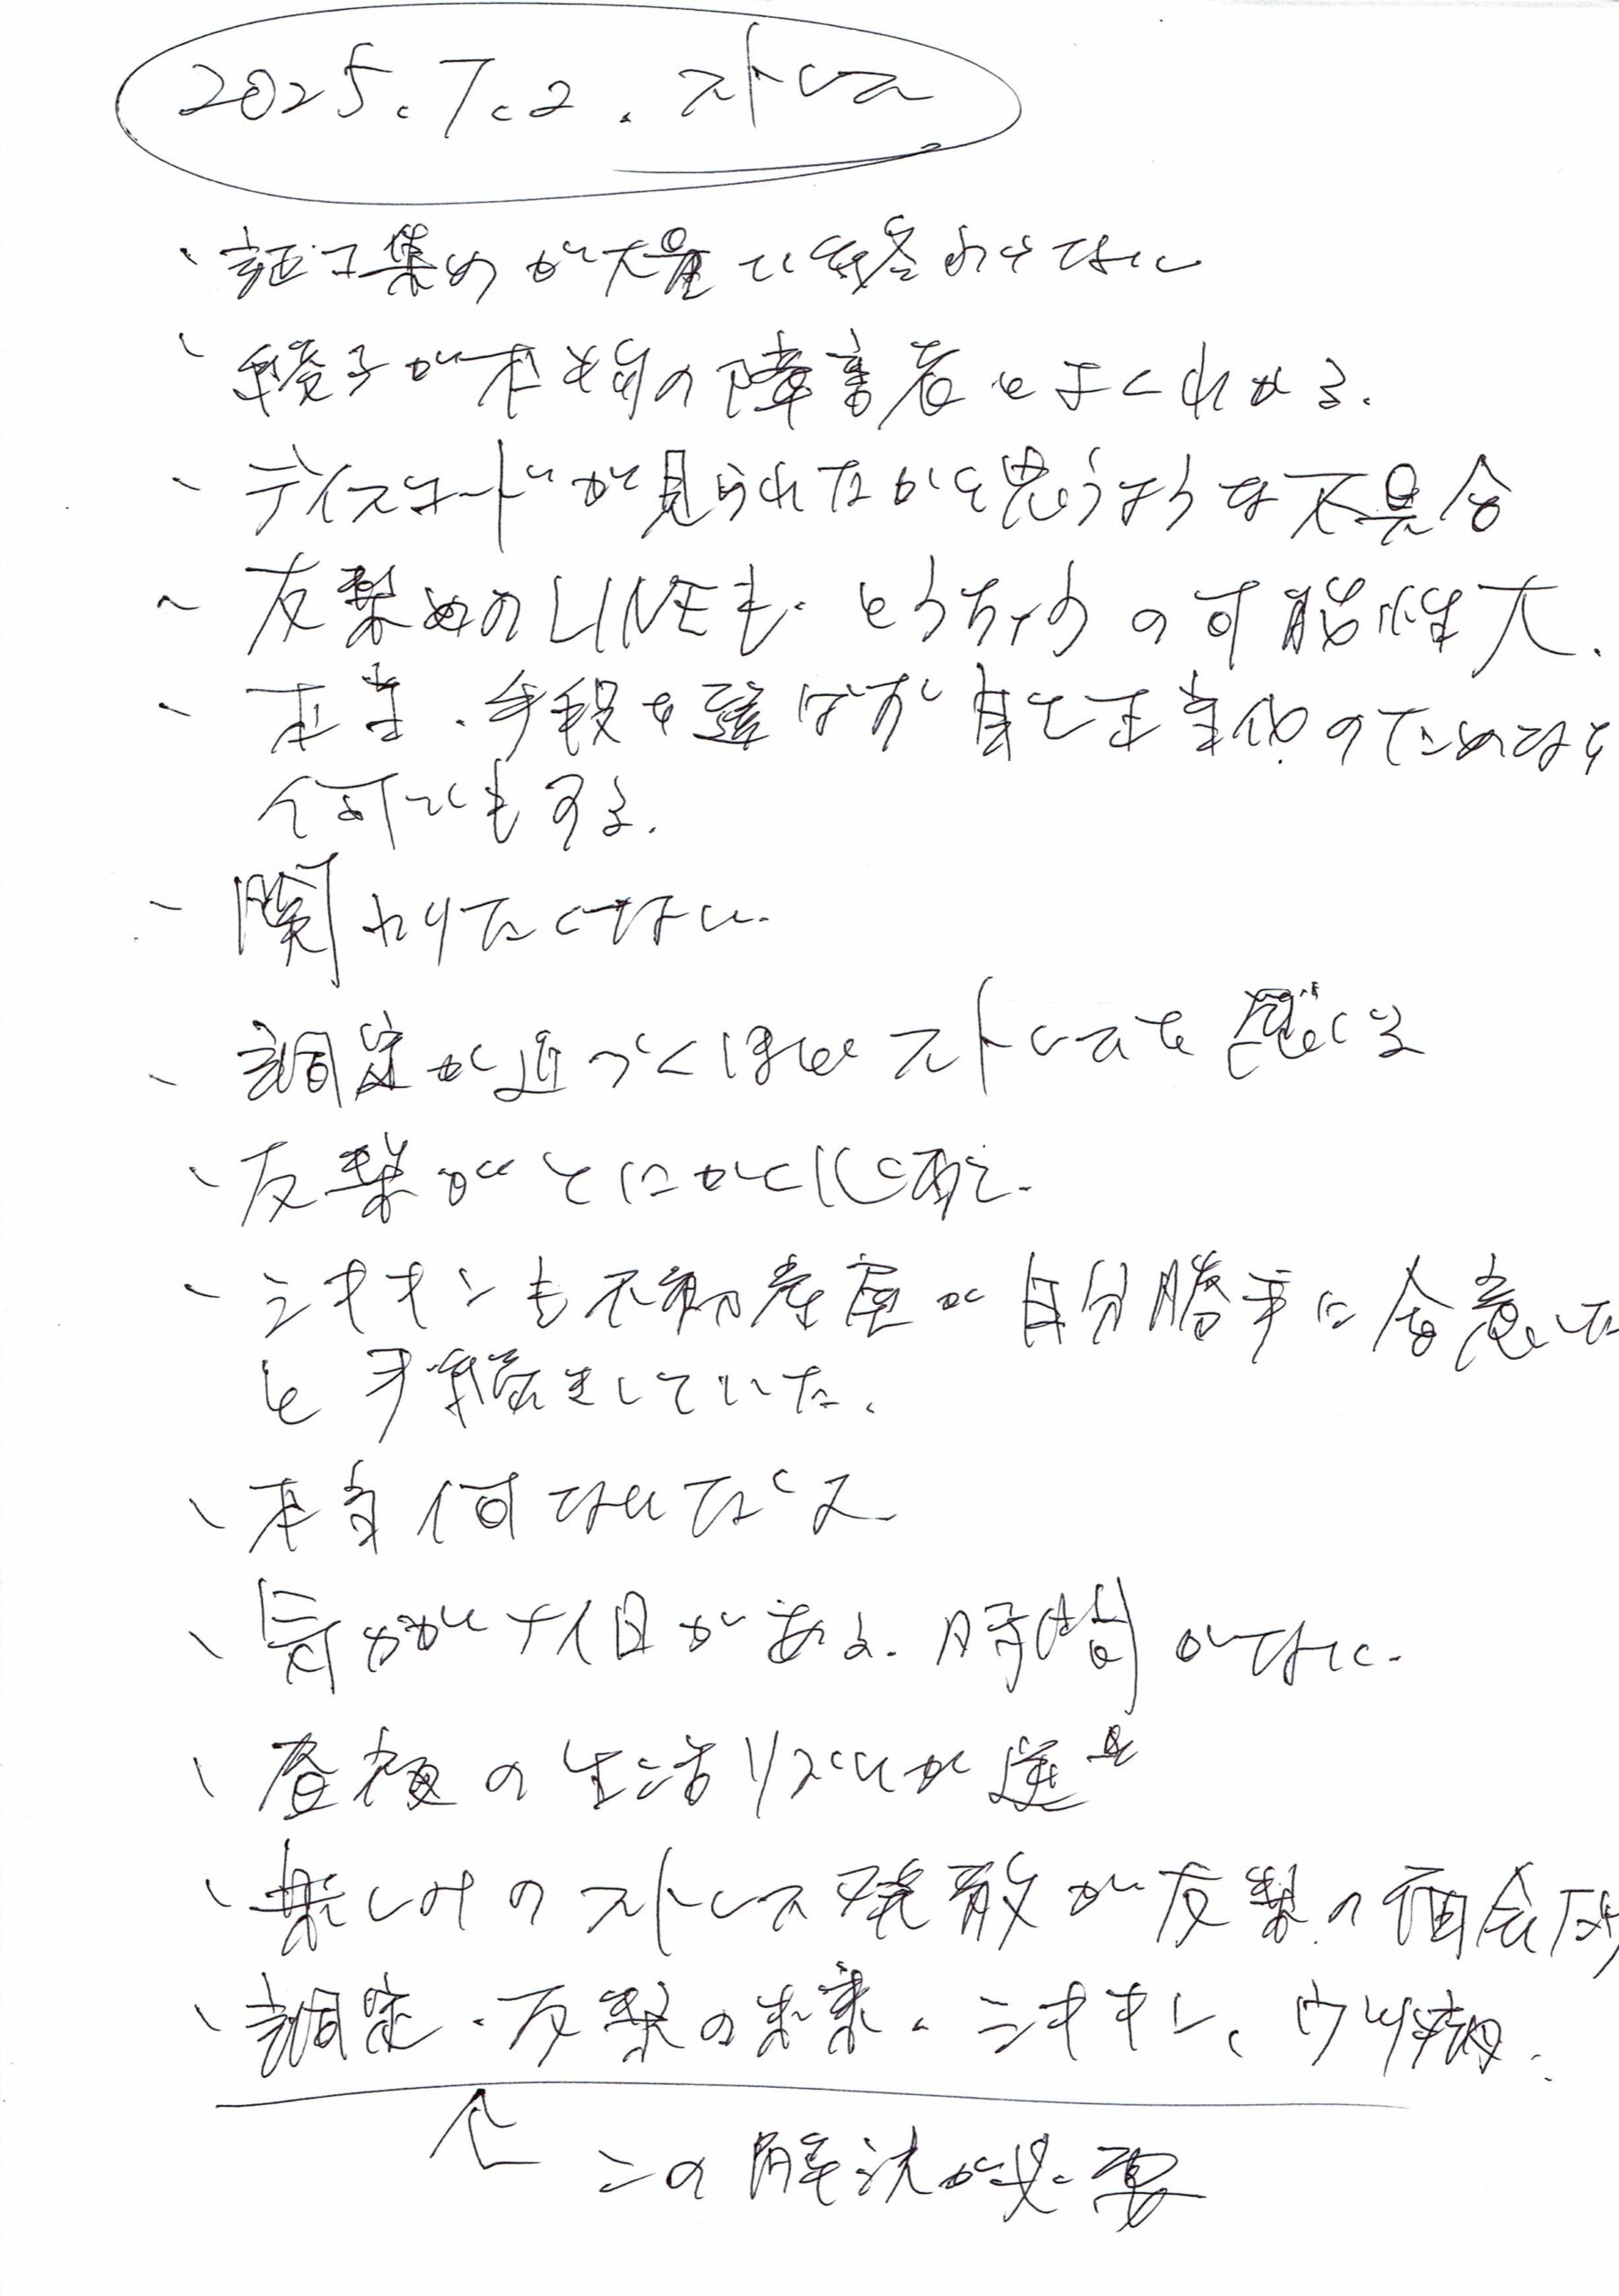 2025.7.2. ストレス
・証コ集めが大量で終わらない
・綾子が本物の障害者とよくわかる.
・ディスコードが見られたかと思うような不具合
・友梨めのLINEも.とうちょうの可能性大.
・本当.手段を選ばず自己正当化のためなら
何でもする.
・関わりたくない.
・調定が近づくほどストレスを感じる
・友梨がとにかく心配.
・シオオンも不動産屋が自分勝手に合意した
と していた.
・本当何なんだこ
・気がかり十日がある.時間がない.
・昼夜の生活リズムが逆
・楽しみのストレス発散が友梨の面会
・調定.友梨の未来.シオオン、ウツ病.
↑この解決が必要